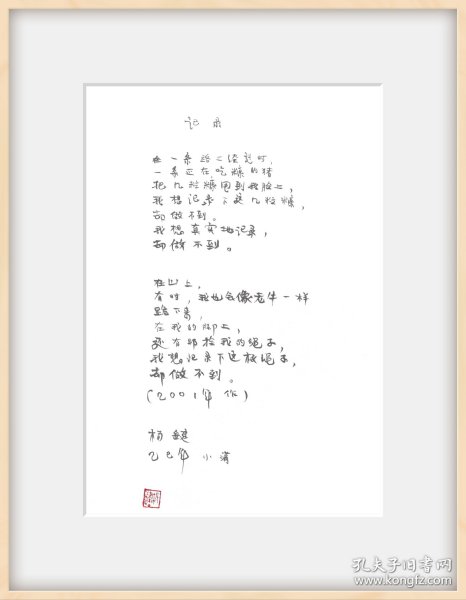 记录
在一条路上徐说时，
一条正在吃糠的猪
把几粒糠甩到我脸上，
我想记录下这几粒糠，
却做不到。
我想真实地记录，
却做不到。
在山上，
有时，我也会像老牛一样
跪下来，
在我的脚上，
还有那拴我的绳子，
我想记录下这根绳子，
却做不到。
(2001年作)
杨键
乙巳年 小满
孔夫子旧书网
www.kongfz.com